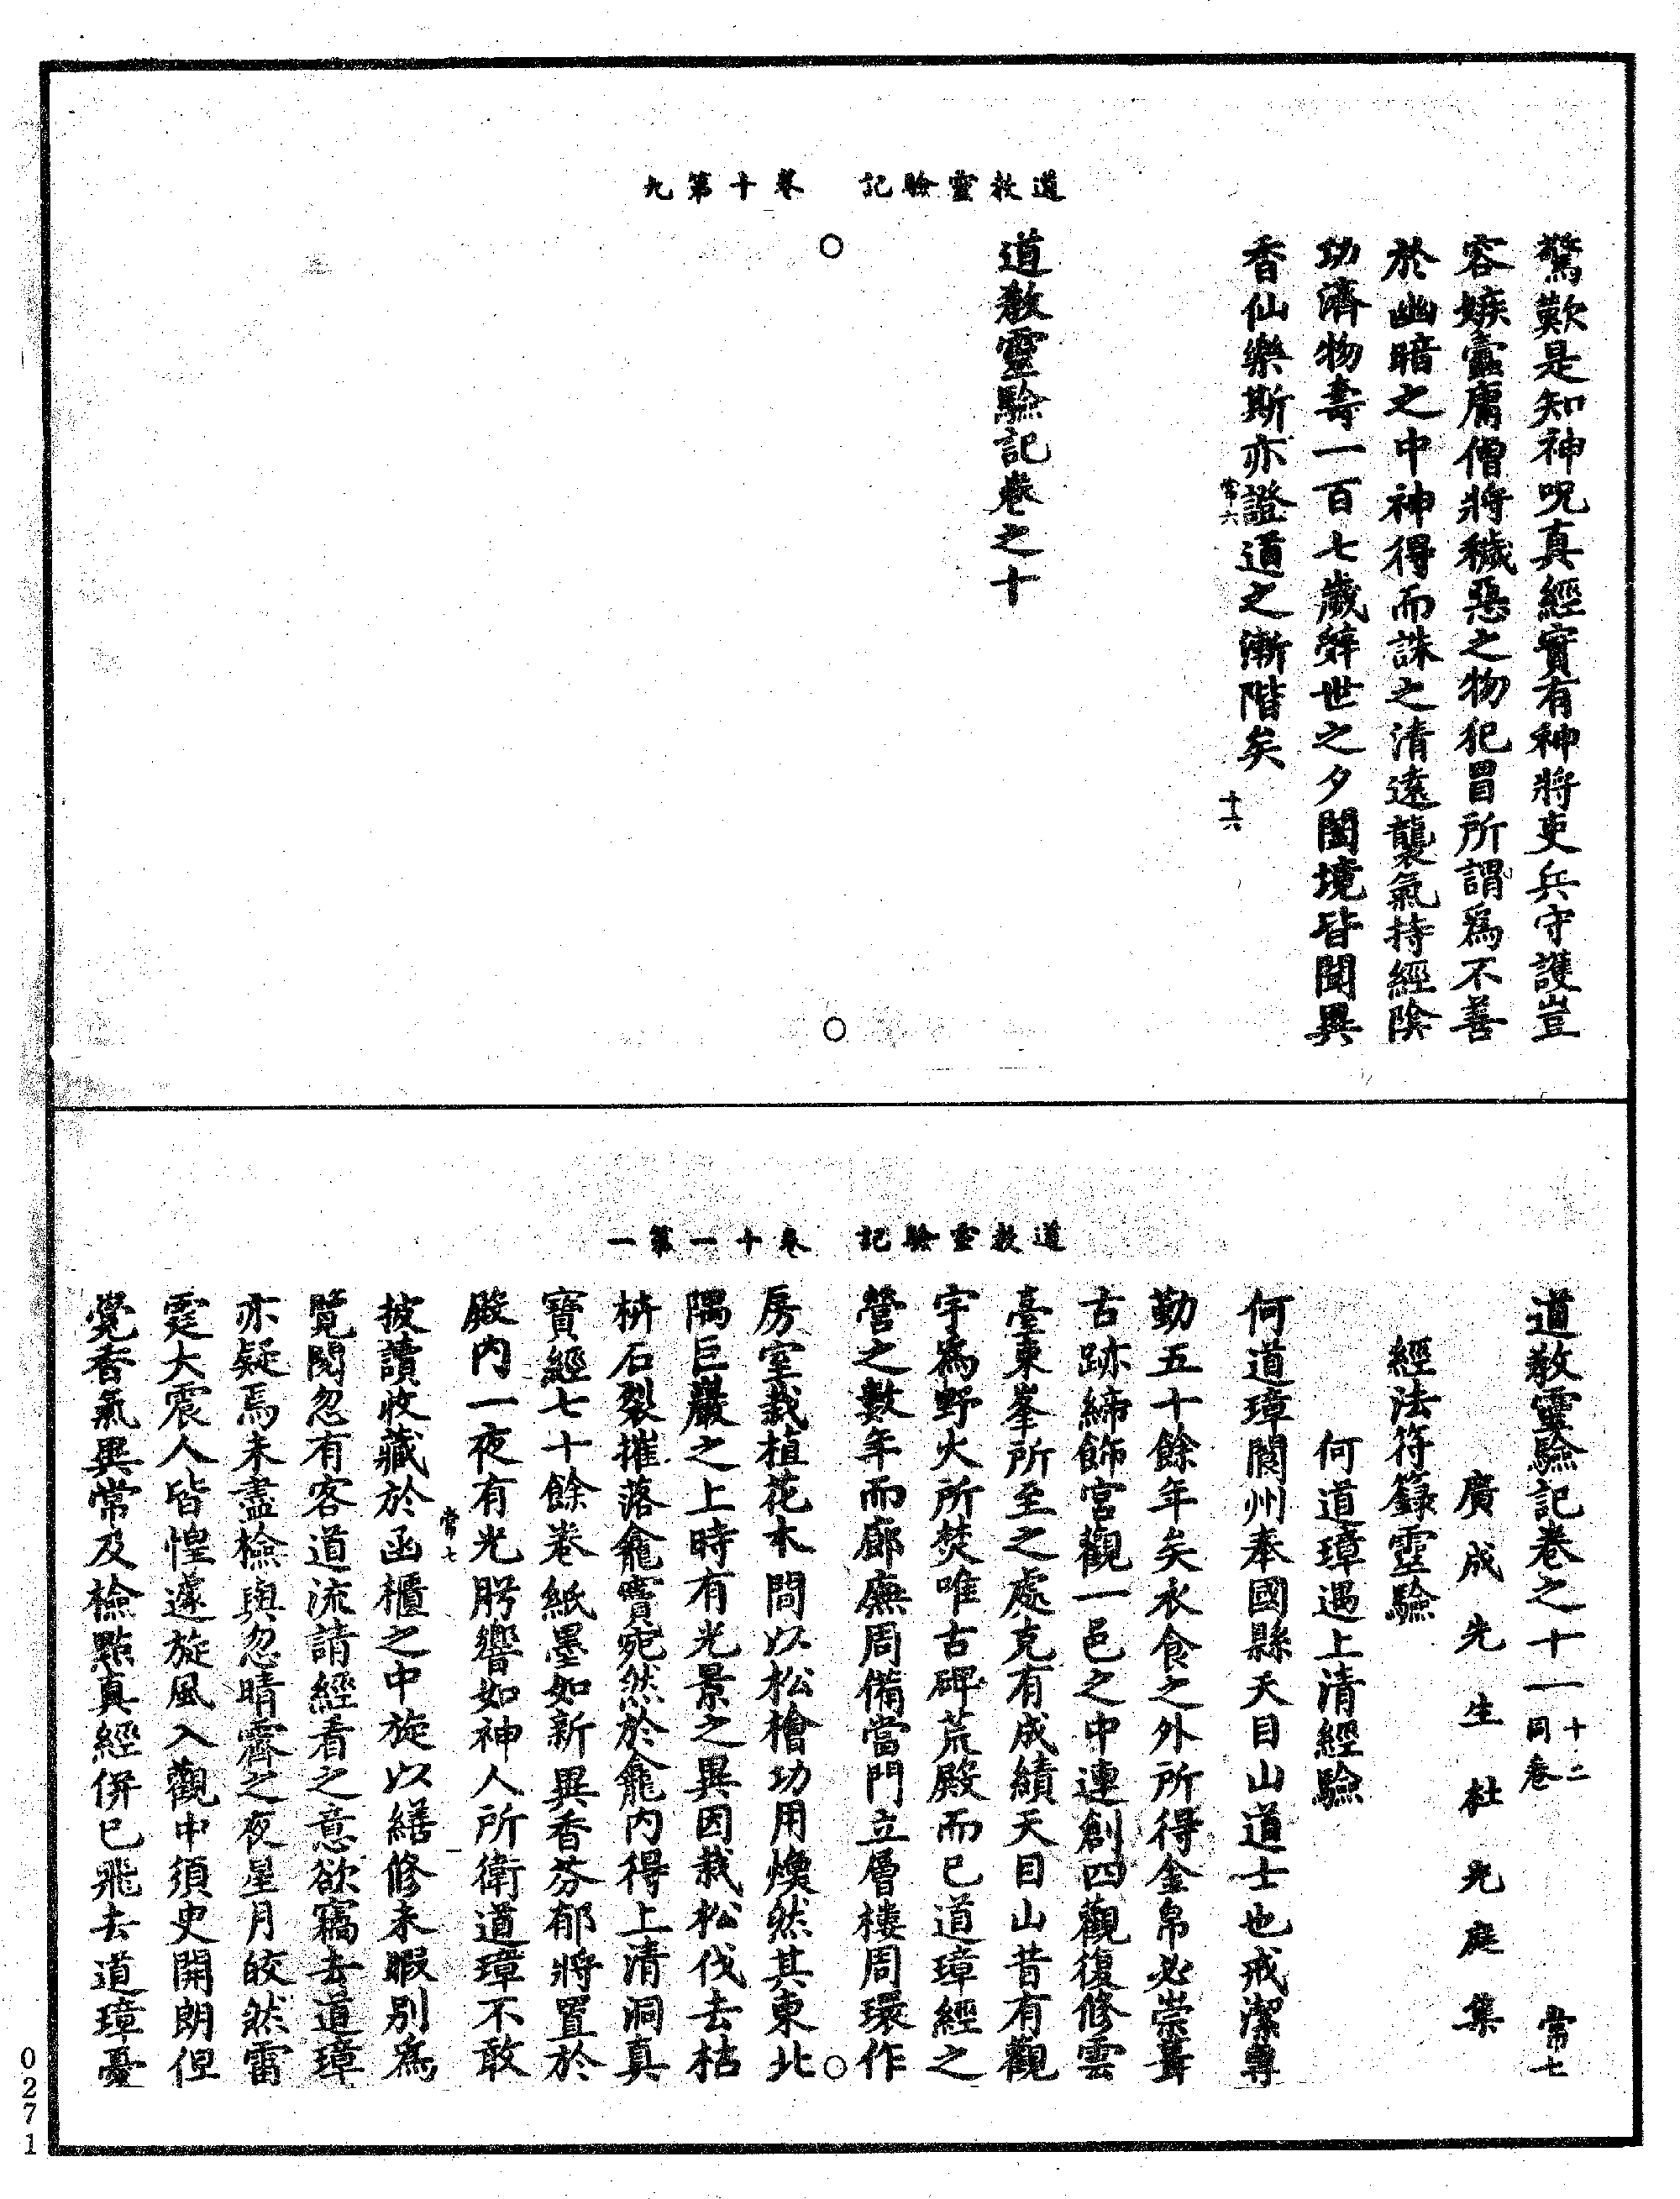 道教靈驗記　卷十第九
驚歎是知神呪真經實有神將吏兵守護豈
容嫉蠹庸僧將穢惡之物犯冒所謂爲不善
於幽暗之中神得而誅之清遠襲氣持經陰
功濟物壽一百七歲辭世之夕闔境皆聞異
香仙樂斯亦證道之漸階矣
常六
十六
道教靈驗記卷之十
道教靈驗記　卷十一第一
道教靈驗記卷之十一 十二同卷 常七
廣成先生杜光庭集
經法符籙靈驗
何道璋遇上清經驗
何道璋閬州奉國縣天目山道士也戒潔專
勤五十餘年矣衣食之外所得金帛必崇葺
古跡締飾宮觀一邑之中連創四觀復修雲
臺東峯所至之處克有成績天目山昔有觀
宇爲野火所焚唯古碑荒殿而已道璋經之
營之數年而廊廡周備當門立層樓周環作
房室栽植花木間以松檜功用煥然其東北
隅巨巖之上時有光景之異因栽松伐去枯
枿石裂摧落龕竇宛然於龕內得上清洞真
寶經七十餘卷紙墨如新異香芬郁將置於
殿內一夜有光肸響如神人所衛道璋不敢
常七
披讀收藏於函櫃之中旋以繕修未暇別爲
覽閱忽有客道流請經看之意欲竊去道璋
亦疑焉未盡檢與忽晴霽之夜星月皎然雷
霆大震人皆惶遽旋風入觀中須臾開朗但
覺香氣異常及檢點真經併已飛去道璋憂
0271